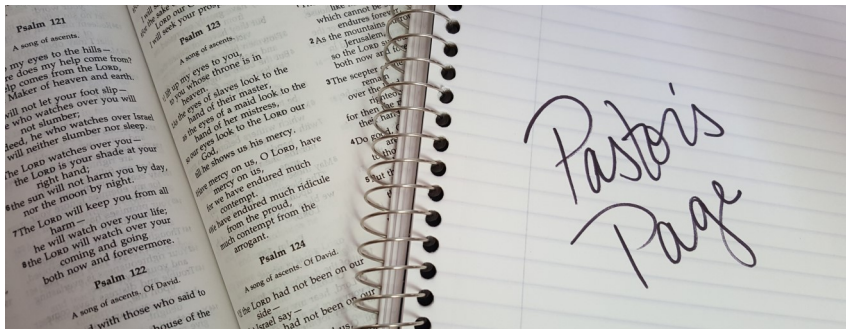 Psalm 121
A song of ascents.
my eyes to the hills—
does my help come from?
comes from the LORD,
Maker of heaven and earth.
will not let your foot slip—
who watches over you will
not slumber;
he who watches over Israel
will neither slumber nor sleep.
The LORD watches over you—
the LORD is your shade at your
right hand;
6 the sun will not harm you by day,
nor the moon by night.
7 The LORD will keep you from all
harm—
he will watch over your life;
8 the LORD will watch over your
coming and going
both now and forevermore.
Psalm 122
A song of ascents. Of David.
with those who said to
house of the
LORD our
I will seek your
Psalm 123
A song of ascents.
lift up my eyes to you,
to you whose throne is in
heaven.
the eyes of slaves look to the
hand of their master,
the eyes of a maid look to the
hand of her mistress,
our eyes look to the LORD our
God,
he shows us his mercy.
mercy on us, O LORD, have
mercy on us,
for we have endured much
contempt.
We have endured much ridicule
from the proud,
much contempt from the
arrogant.
Psalm 124
A song of ascents. Of David.
the LORD had not been on our
side—
Israel say—
had not been on our
which cannot be
endures forever.
2 As the mountains
Jerusalem,
so the LORD
both now and
3 The scepter
remain
over the
for then the
the
4 Do good,
5 But
Pastor's
Page